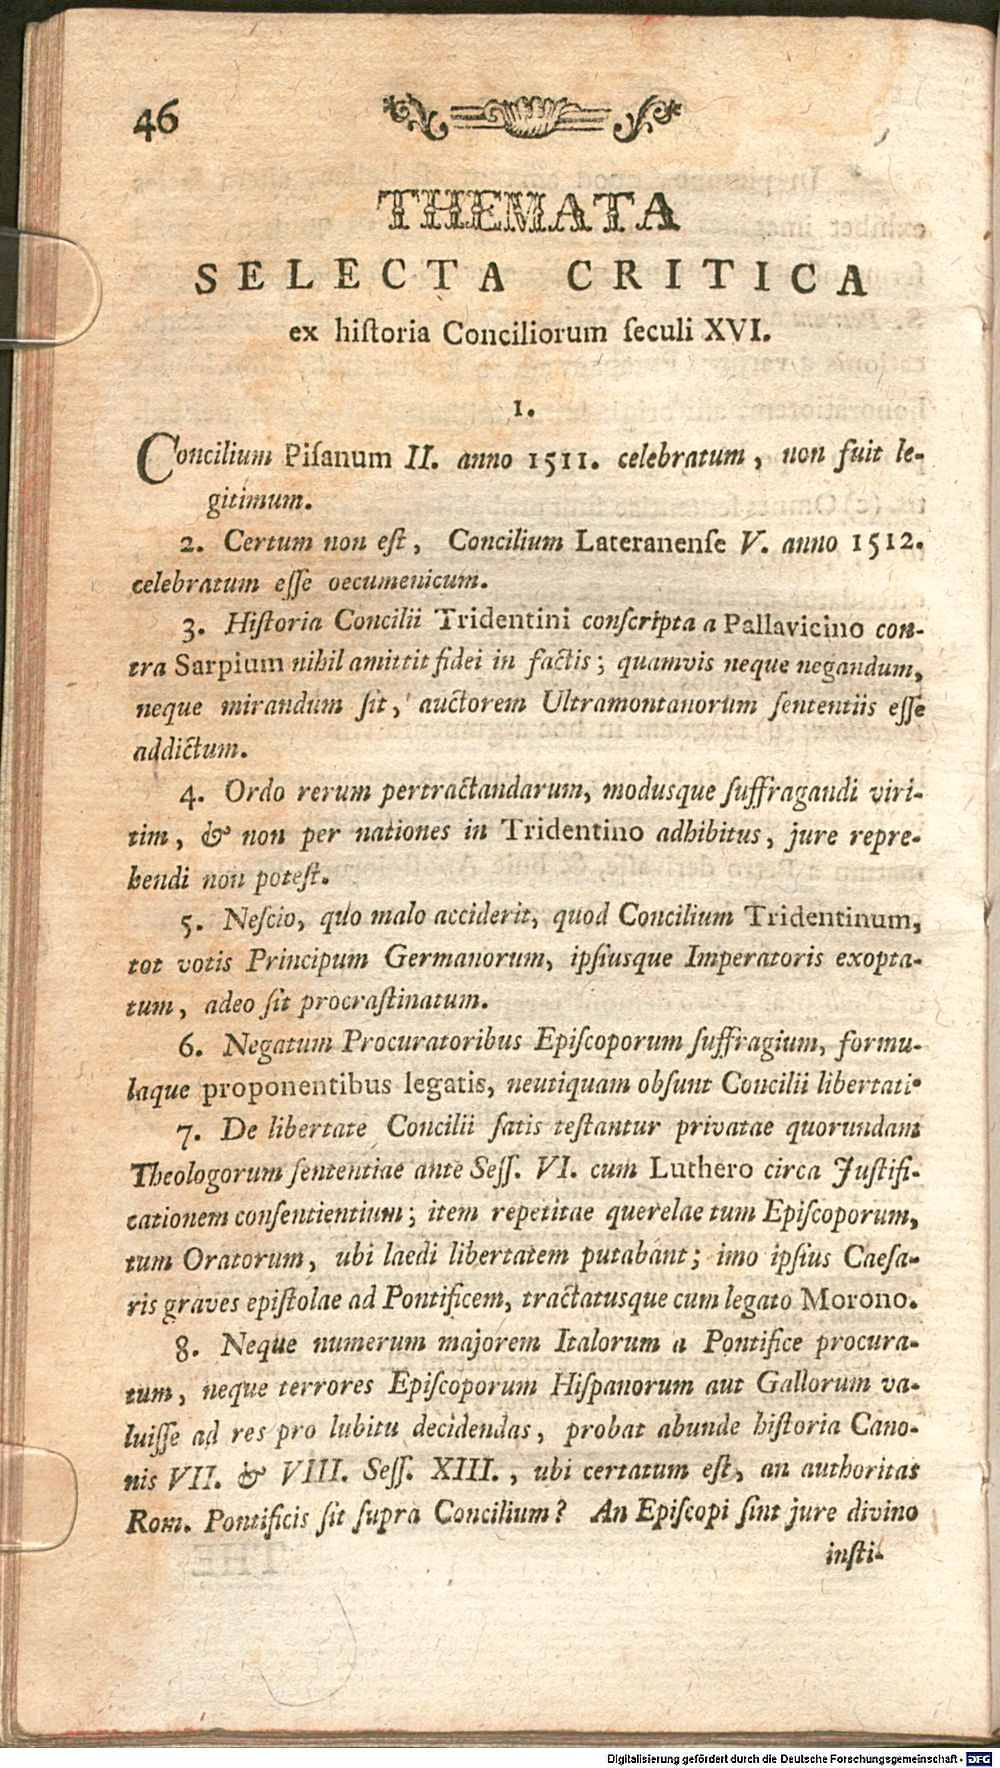 46
THEMATA
SELECTA CRITICA
ex hiſtoria Conciliorum ſeculi XVI.
1.
Concilium Piſanum II. anno 1511. celebratum, non fuit le-
gitimum.
2. Certum non eſt, Concilium Lateranenſe V. anno 1512.
celebratum eſſe oecumenicum.
3. Hiſtoria Concilii Tridentini conſcripta a Pallavicino con-
tra Sarpium nihil amittit fidei in factis; quamvis neque negandum,
neque mirandum ſit, auctorem Ultramontanorum ſententiis eſſe
addictum.
4. Ordo rerum pertractandarum, modusque ſuffragandi viri-
tim, & non per nationes in Tridentino adhibitus, jure repre-
hendi non poteſt.
5. Neſcio, quo malo acciderit, quod Concilium Tridentinum,
tot votis Principum Germanorum, ipſiusque Imperatoris exopta-
tum, adeo ſit procraſtinatum.
6. Negatum Procuratoribus Epiſcoporum ſuffragium, formu-
laque proponentibus legatis, neutiquam obſunt Concilii libertati.
7. De libertate Concilii ſatis teſtantur privatae quorundam
Theologorum ſententiae ante Seſſ. VI. cum Luthero circa Juſtifi-
cationem conſentientium; item repetitae querelae tum Epiſcoporum,
tum Oratorum, ubi laedi libertatem putabant; imo ipſius Caeſa-
ris graves epiſtolae ad Pontificem, tractatusque cum legato Morono.
8. Neque numerum majorem Italorum a Pontifice procura-
tum, neque terrores Epiſcoporum Hiſpanorum aut Gallorum va-
luiſſe ad res pro lubitu decidendas, probat abunde hiſtoria Cano-
nis VII. & VIII. Seſſ. XIII., ubi certatum eſt, an authoritas
Rom. Pontificis ſit ſupra Concilium? An Epiſcopi ſint jure divino
inſti-
Digitalisierung gefördert durch die Deutsche Forschungsgemeinschaft - DFG